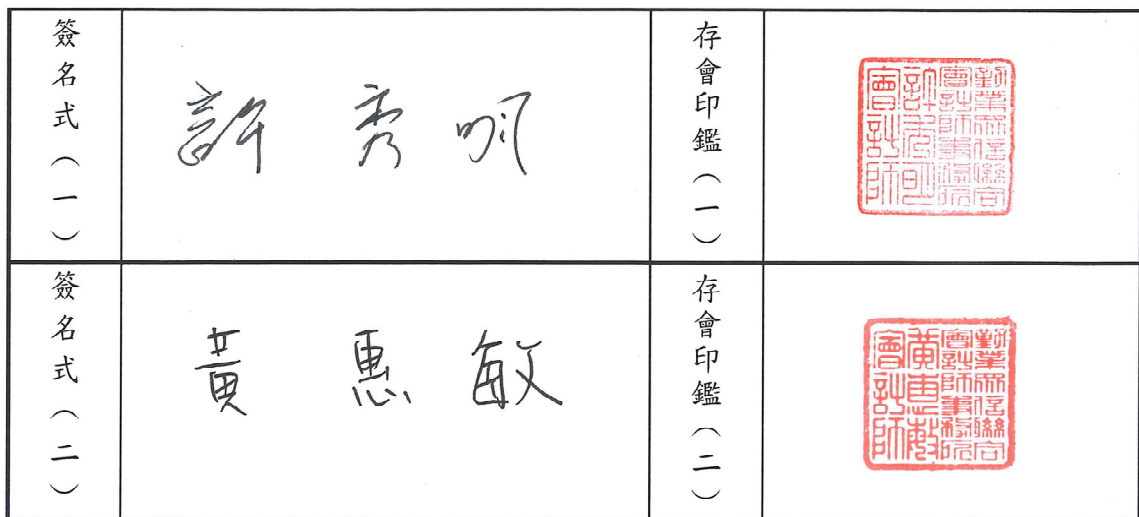 簽名式（一）
許秀明
存會印鑑（一）
勤業眾信聯合
會計師事務所
許秀明
會計師
簽名式（二）
黃惠敏
存會印鑑（二）
勤業眾信聯合
會計師事務所
黃惠敏
會計師